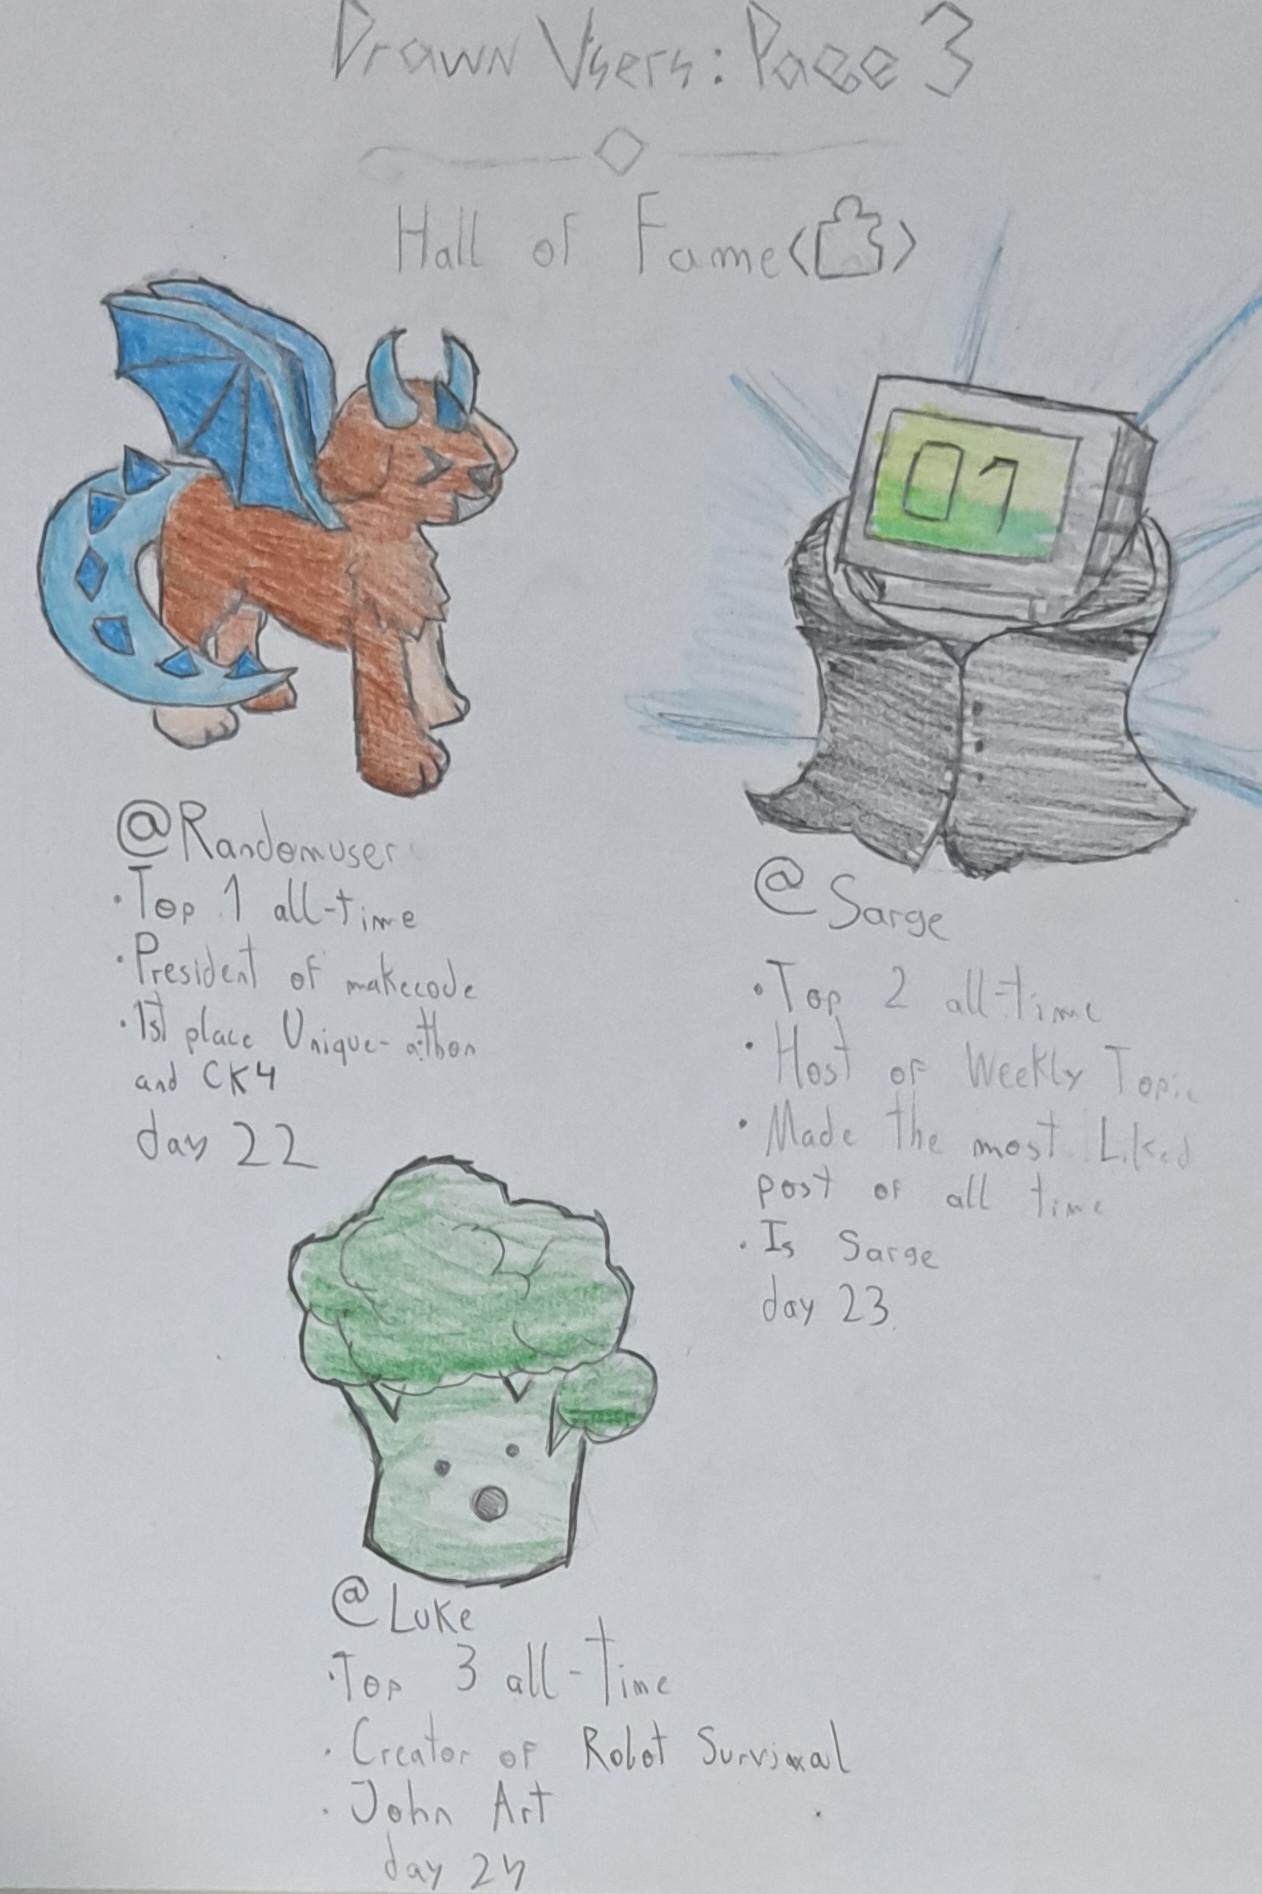 Drawn Users: Page 3
Hall of Fame
01
@Randomuser
• Top 1 all-time
• President of makecode
• 1st place Unique-athon
and CK4
day 22
@Sarge
• Top 2 all-time
• Host of Weekly Topic
• Made the most Liked
post of all time
• Is Sarge
day 23
@Luke
• Top 3 all-time
• Creator of Robot Survival
• John Art
day 24